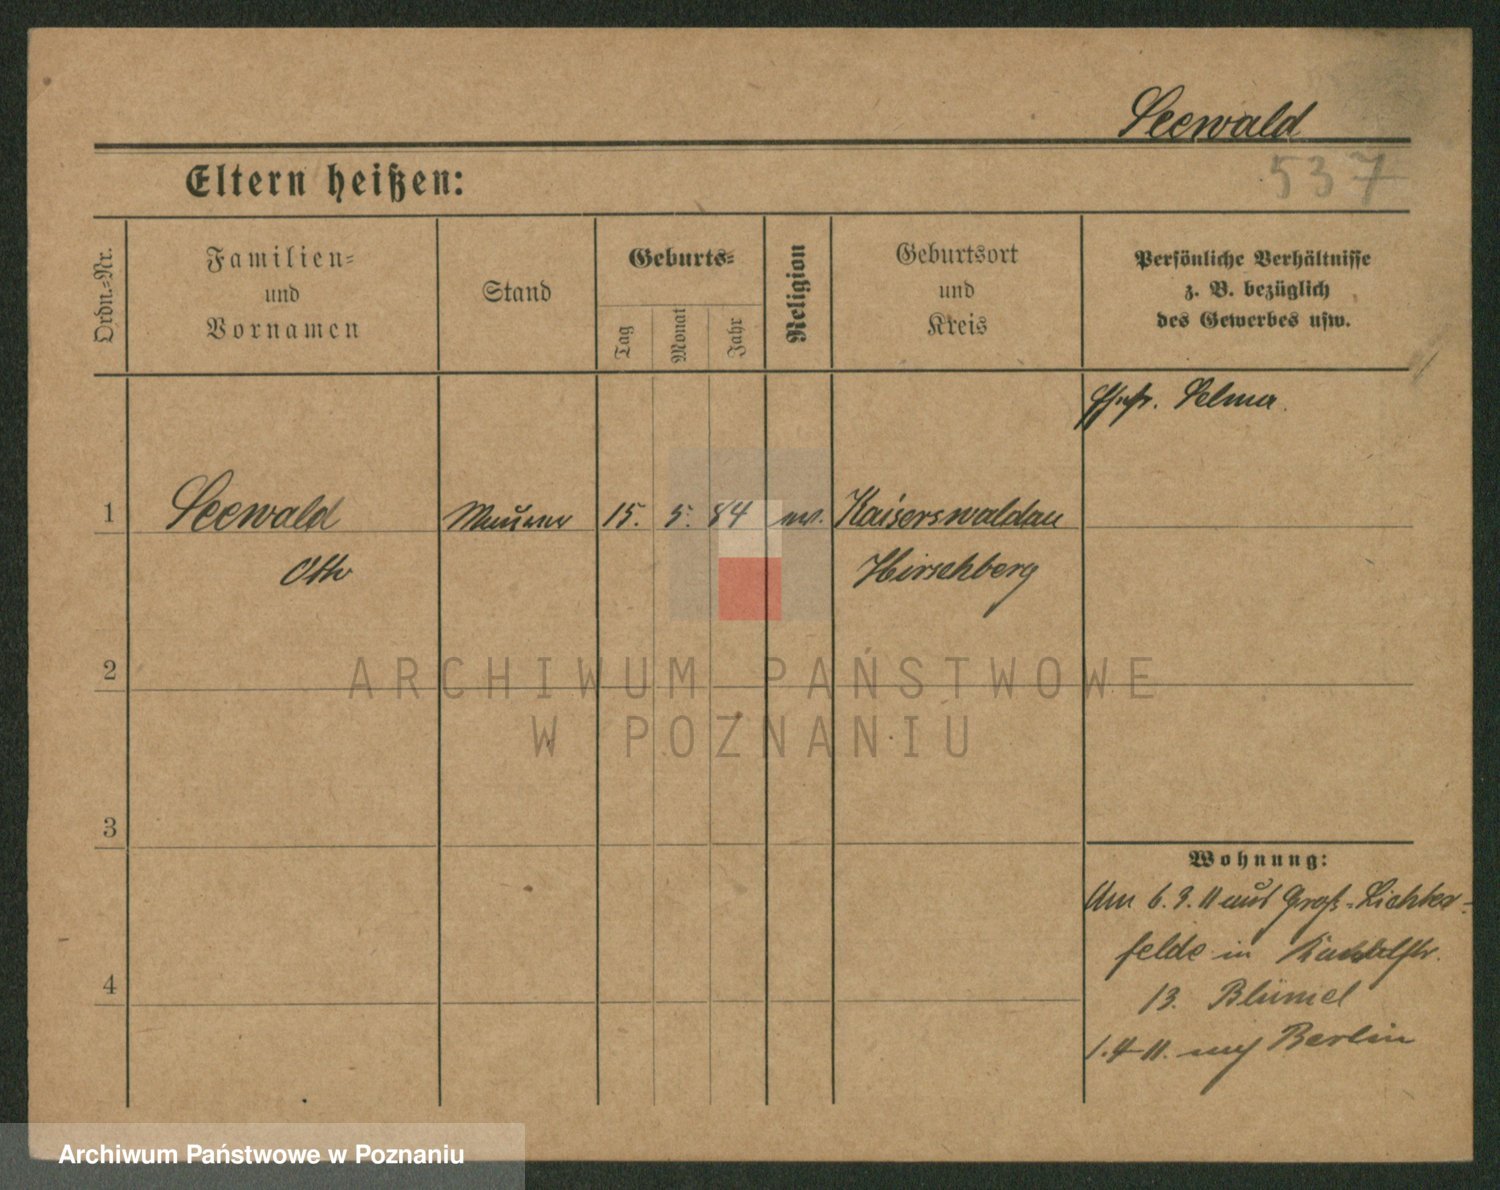 Seewald
537
Eltern heißen:
Ordn.=Nr.
Familien=
und
Vornamen
Stand
Geburts=
Tag
Monat
Jahr
Religion
Geburtsort
und
Kreis
Persönliche Verhältnisse
z. B. bezüglich
des Gewerbes usw.
Ehefr. Selma.
1
Seewald
Maurer
15.
5.
84
ev.
Kaiserswaldau
Otto
Hirschberg
2
ARCHIWUM PAŃSTWOWE
W POZNANIU
3
Wohnung:
Am 6. 3. 11 aus Groß-Lichter-
felde in
13. Blümel
4
1. 4. 11. nach Berlin
Archiwum Państwowe w Poznaniu